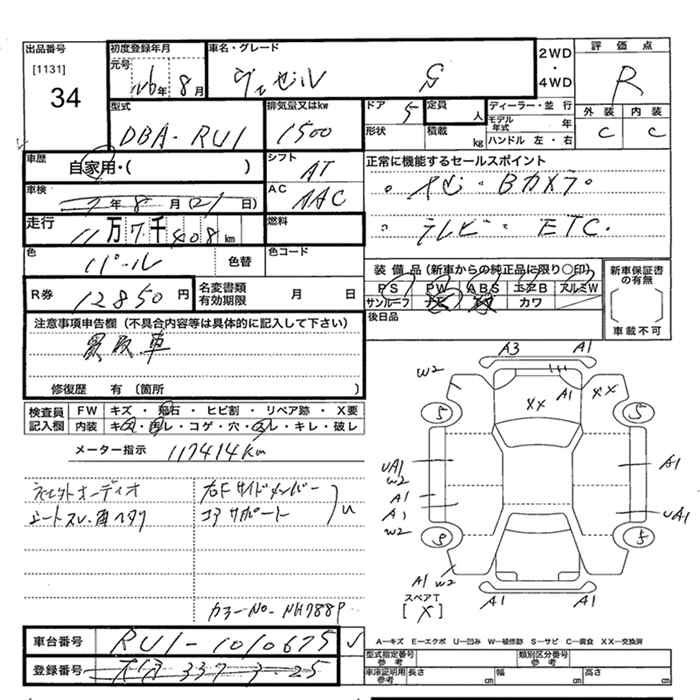 出品番号
[1131]
34
初度登録年月
元号 H26年 8月
車名・グレード
ヴェゼル G
2WD
・
4WD
評価点
R
外装 内装
C C
型式
DBA-RU1
排気量又はkw
1500
ドア 5
定員 人
形状
積載 kg
ディーラー・並行
モデル年式 年
ハンドル 左・右
車歴
自家用・( )
シフト
AT
正常に機能するセールスポイント
車検
7年8月(21日)
AC
AAC
・ナビ・Bカメラ・
走行
11万7千408km
燃料
・テレビ・ETC.
色
パール
色替
色コード
装備品(新車からの純正品に限り○印)
PS PW ABS エアB アルミW
サンルーフ ナビ カワ
新車保証書の有無
[ ]
車載不可
R券 12850円
名変書類有効期限 月 日
後日品
注意事項申告欄(不具合内容等は具体的に記入して下さい)
買取車
修復歴 有 (箇所 )
検査員記入欄
FW キズ・飛石・ヒビ割・リペア跡・X要
内装 キズ・汚レ・コゲ・穴・スレ・キレ・破レ
メーター指示 117414Km
右Fサイドメンバー
コアサポート
U
カラーNo. NH788P
A3 A1
W2 A1 XX XX
5 5
UA1 W2 A1
A1
A1 UA1
W2 5 5
A1 W2
スペアT
[ X ]
A1 A1
A―キズ E―エクボ U―凹み W―補修跡 S―サビ C―腐食 XX―交換済
車台番号 RU1-1010675
型式指定番号 参考
類別区分番号 参考
登録番号
車庫証明用参考 長さ cm 幅 cm 高さ cm